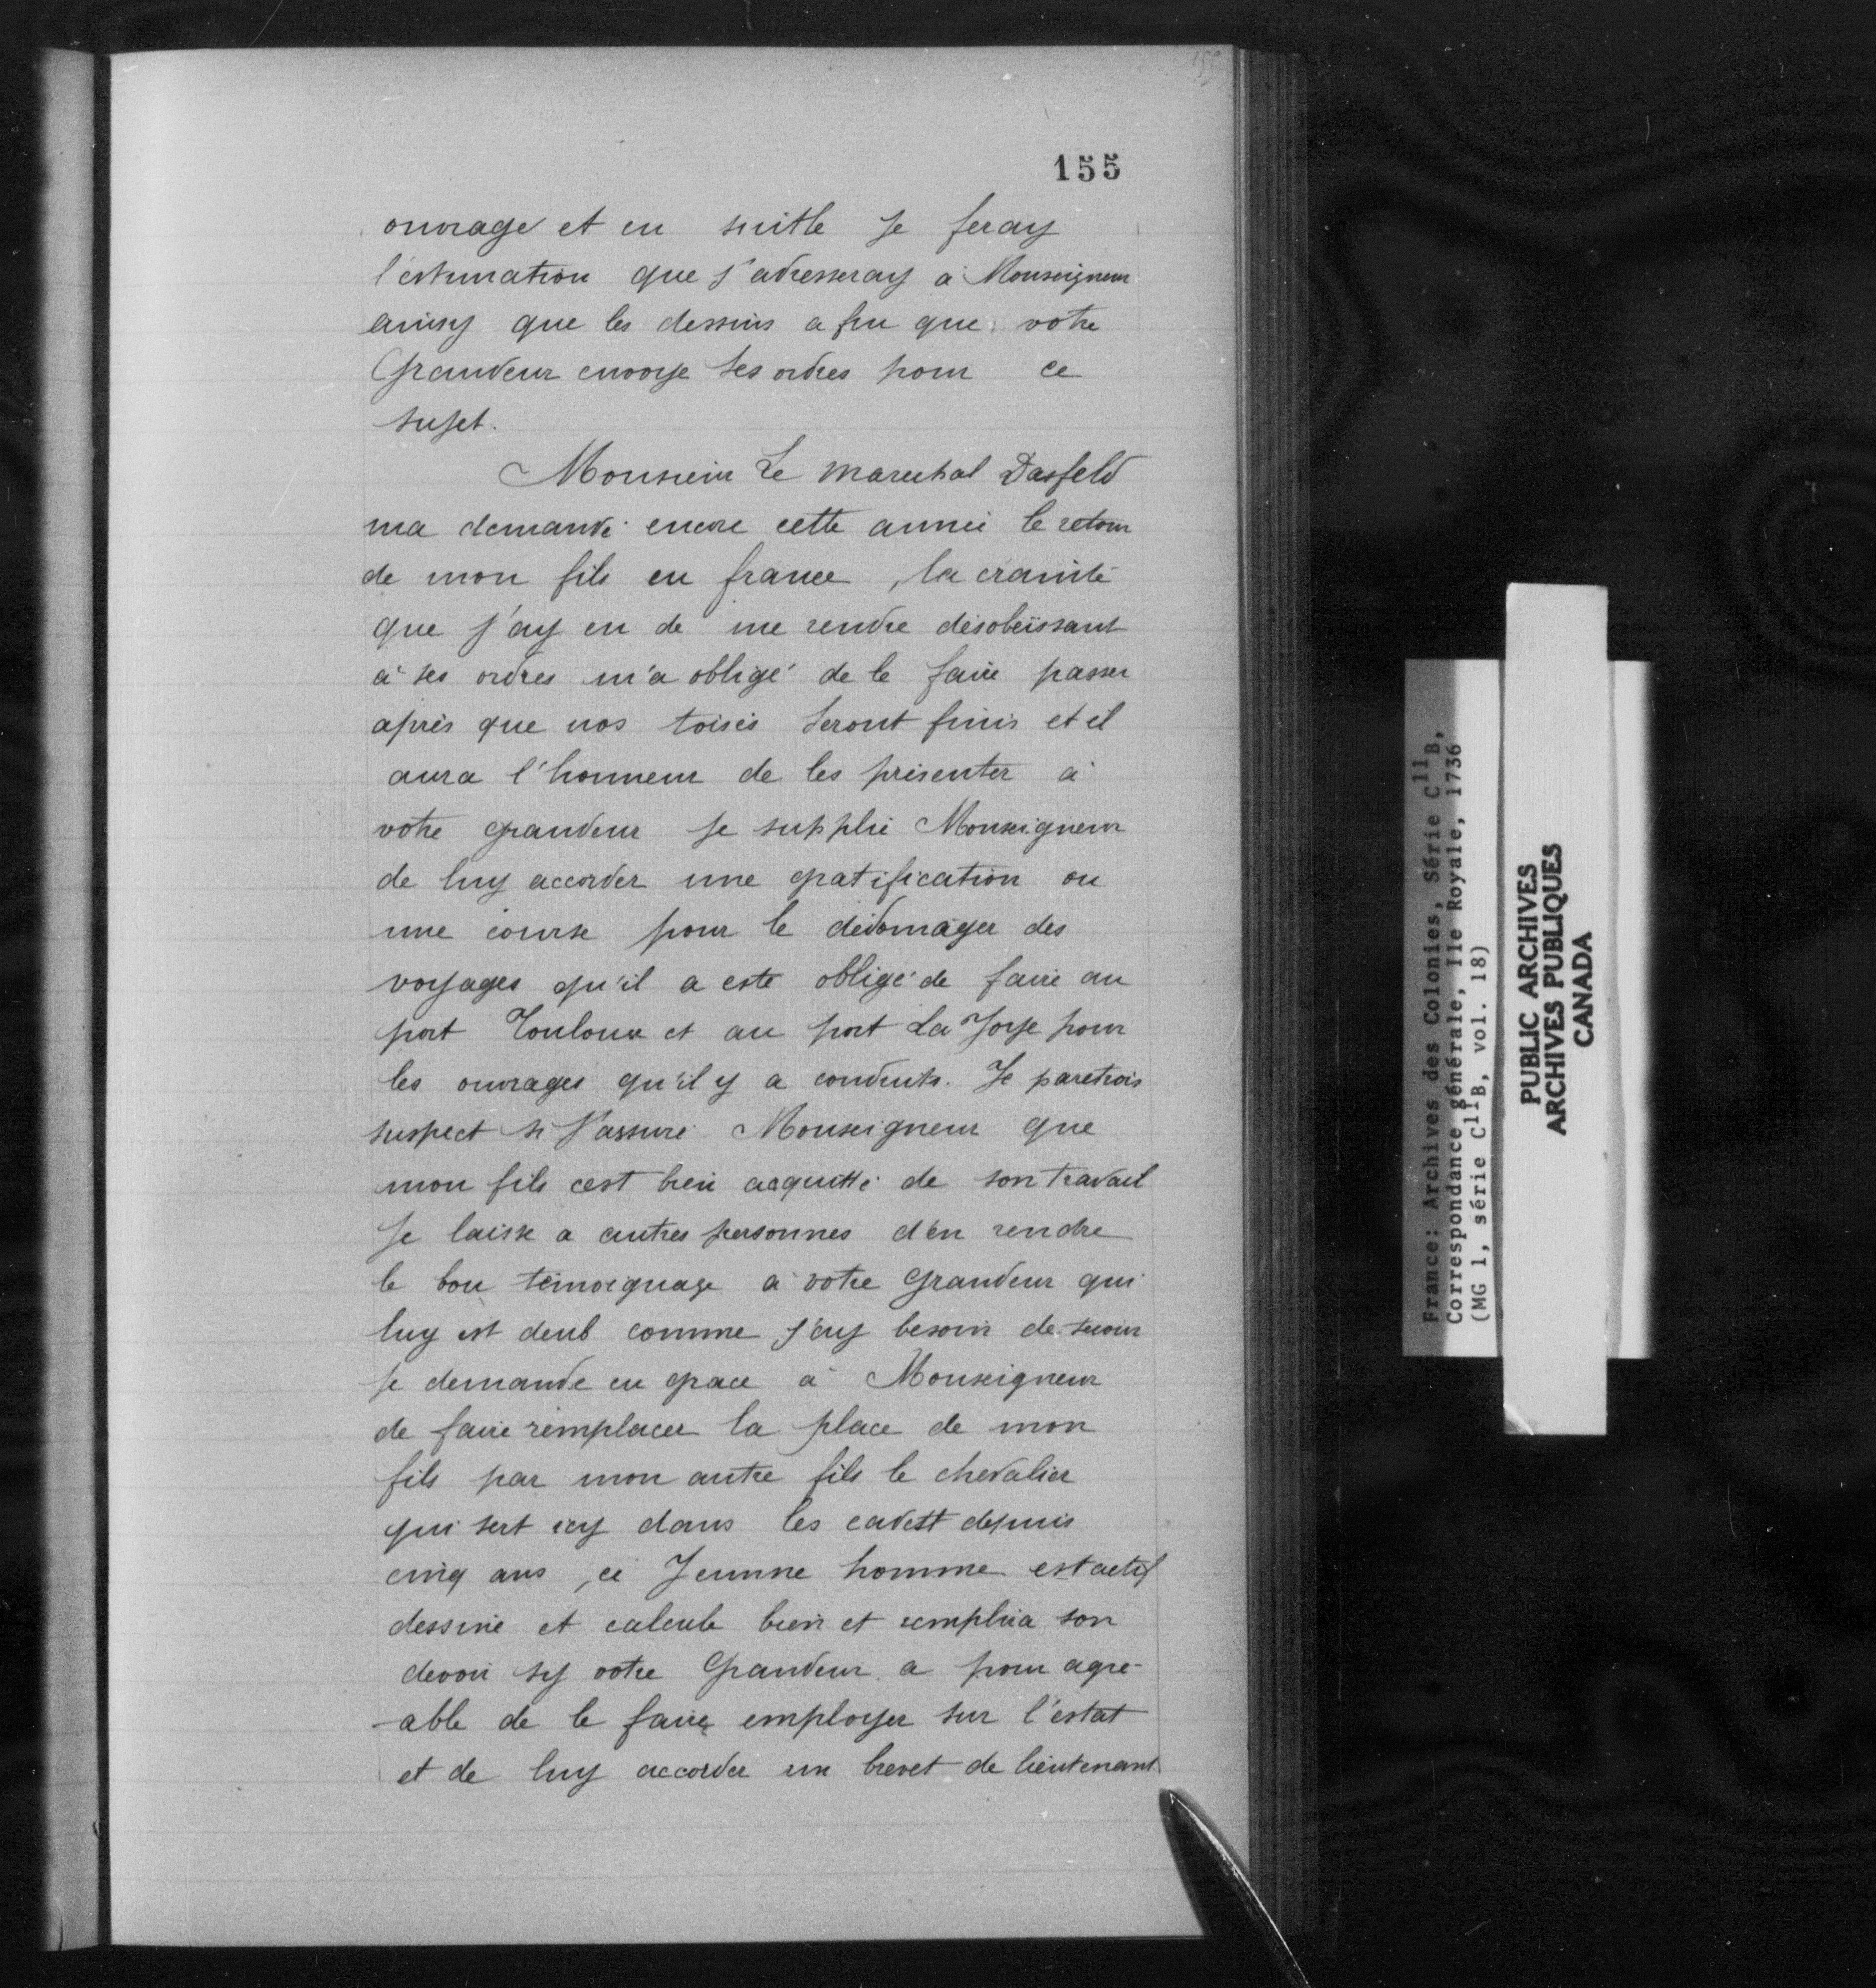 155
ouvrage et en suitte je feray
l'estimation que j'adresseray à Monseigneur
ainsy que les dessins a fin que votre
Grandeur envoye ses ordres pour ce
sujet.
Monsieur Le marechal Dasfeld
ma demandé encore cette année le retour
de mon fils en france, la crainte
que j'ay eu de me rendre désobéissant
à ses ordres m'a obligé de le faire passer
après que nos toisés seront finis et il
aura l'honneur de les présenter à
votre grandeur je supplie Monseigneur
de luy accorder une gratification ou
une course pour le dédomager des
voyages qu'il a esté obligé de faire au
port Toulouse et au port La Joye pour
les ouvrages qu'il y a conduits. Je paretrois
suspect si j'assure Monseigneur que
mon fils cest bien acquitté de son travail
Je laisse a autres personnes d'en rendre
le bon témoignage à votre Grandeur qui
luy est deub comme j'ay besoin de secours
je demande en grace à Monseigneur
de faire remplacer la place de mon
fils par mon autre fils le chevalier
qui sert icy dans les cadett depuis
cinq ans, ce Jeunne homme est actif
dessine et calcule bien et remplira son
devoir sy votre Grandeur a pour agré-
-able de le faire employer sur l'estat
et de luy accorder un brevet de lieutenant
France: Archives des Colonies, Série C11B,
Correspondance générale, Ile Royale, 1736
(MG 1, série C11B, vol. 18)
PUBLIC ARCHIVES
ARCHIVES PUBLIQUES
CANADA